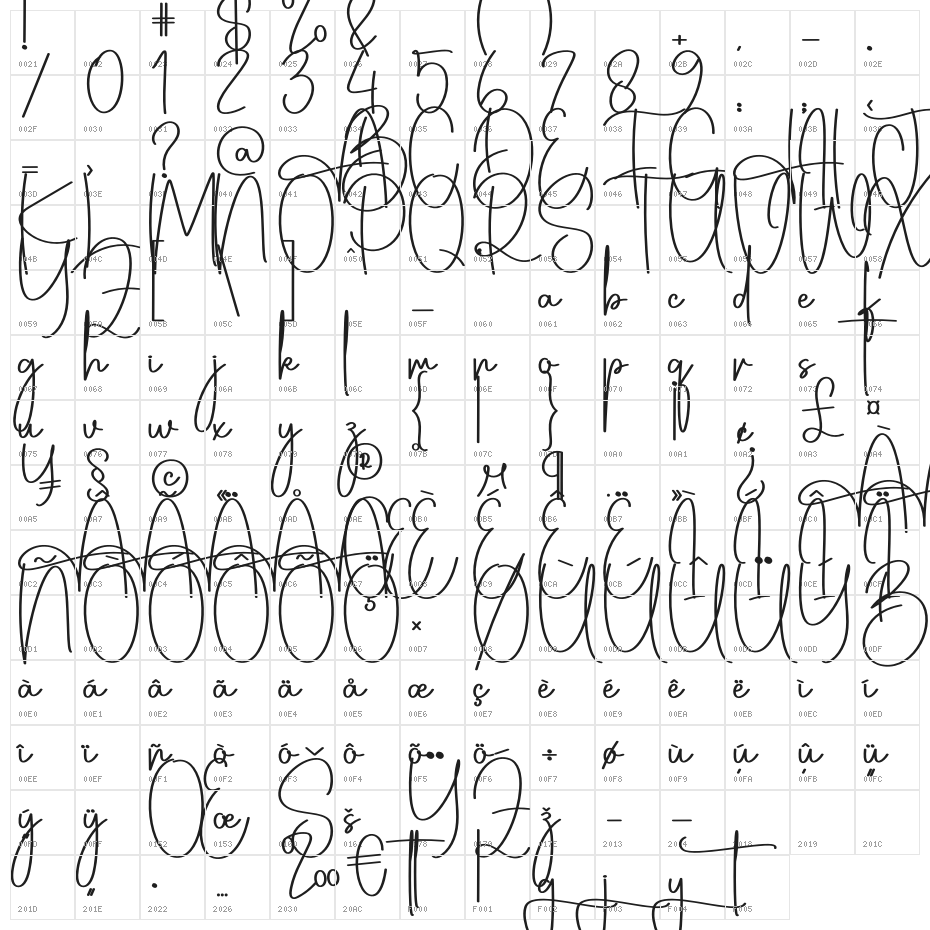 ! # $ % & ( ) + , - .
0021 0022 0023 0024 0025 0026 0027 0028 0029 002A 002B 002C 002D 002E
/ 0 1 2 3 4 5 6 7 8 9 : ; <
002F 0030 0031 0032 0033 0034 0035 0036 0037 0038 0039 003A 003B 003C
= > ? @ A B C D E F G H I J
003D 003E 003F 0040 0041 0042 0043 0044 0045 0046 0047 0048 0049 004A
K L M N O P Q R S T U V W X
004B 004C 004D 004E 004F 0050 0051 0052 0053 0054 0055 0056 0057 0058
Y Z [ \ ] ^ _ a b c d e f
0059 005A 005B 005C 005D 005E 005F 0060 0061 0062 0063 0064 0065 0066
g h i j k l m n o p q r s t
0067 0068 0069 006A 006B 006C 006D 006E 006F 0070 0071 0072 0073 0074
u v w x y z { | } ¡ ¢ £ ¤
0075 0076 0077 0078 0079 007A 007B 007C 007D 00A0 00A1 00A2 00A3 00A4
¥ § © « ® µ ¶ · » ¿ À Á
00A5 00A7 00A9 00AB 00AD 00AE 00B0 00B5 00B6 00B7 00BB 00BF 00C0 00C1
Â Ã Ä Å Æ Ç È É Ê Ë Ì Í Î Ï
00C2 00C3 00C4 00C5 00C6 00C7 00C8 00C9 00CA 00CB 00CC 00CD 00CE 00CF
Ñ Ò Ó Ô Õ Ö × Ø Ù Ú Û Ü Ý ß
00D1 00D2 00D3 00D4 00D5 00D6 00D7 00D8 00D9 00DA 00DB 00DC 00DD 00DF
à á â ã ä å æ ç è é ê ë ì í
00E0 00E1 00E2 00E3 00E4 00E5 00E6 00E7 00E8 00E9 00EA 00EB 00EC 00ED
î ï ñ ò ó ô õ ö ÷ ø ù ú û ü
00EE 00EF 00F1 00F2 00F3 00F4 00F5 00F6 00F7 00F8 00F9 00FA 00FB 00FC
ý ÿ Œ œ Š š Ÿ Ž ž – —
00FD 00FF 0152 0153 0160 0161 0178 017D 017E 2013 2014 2018 2019 201C
„ • … ‰ €
201D 201E 2022 2026 2030 20AC F000 F001 F002 F003 F004 F005